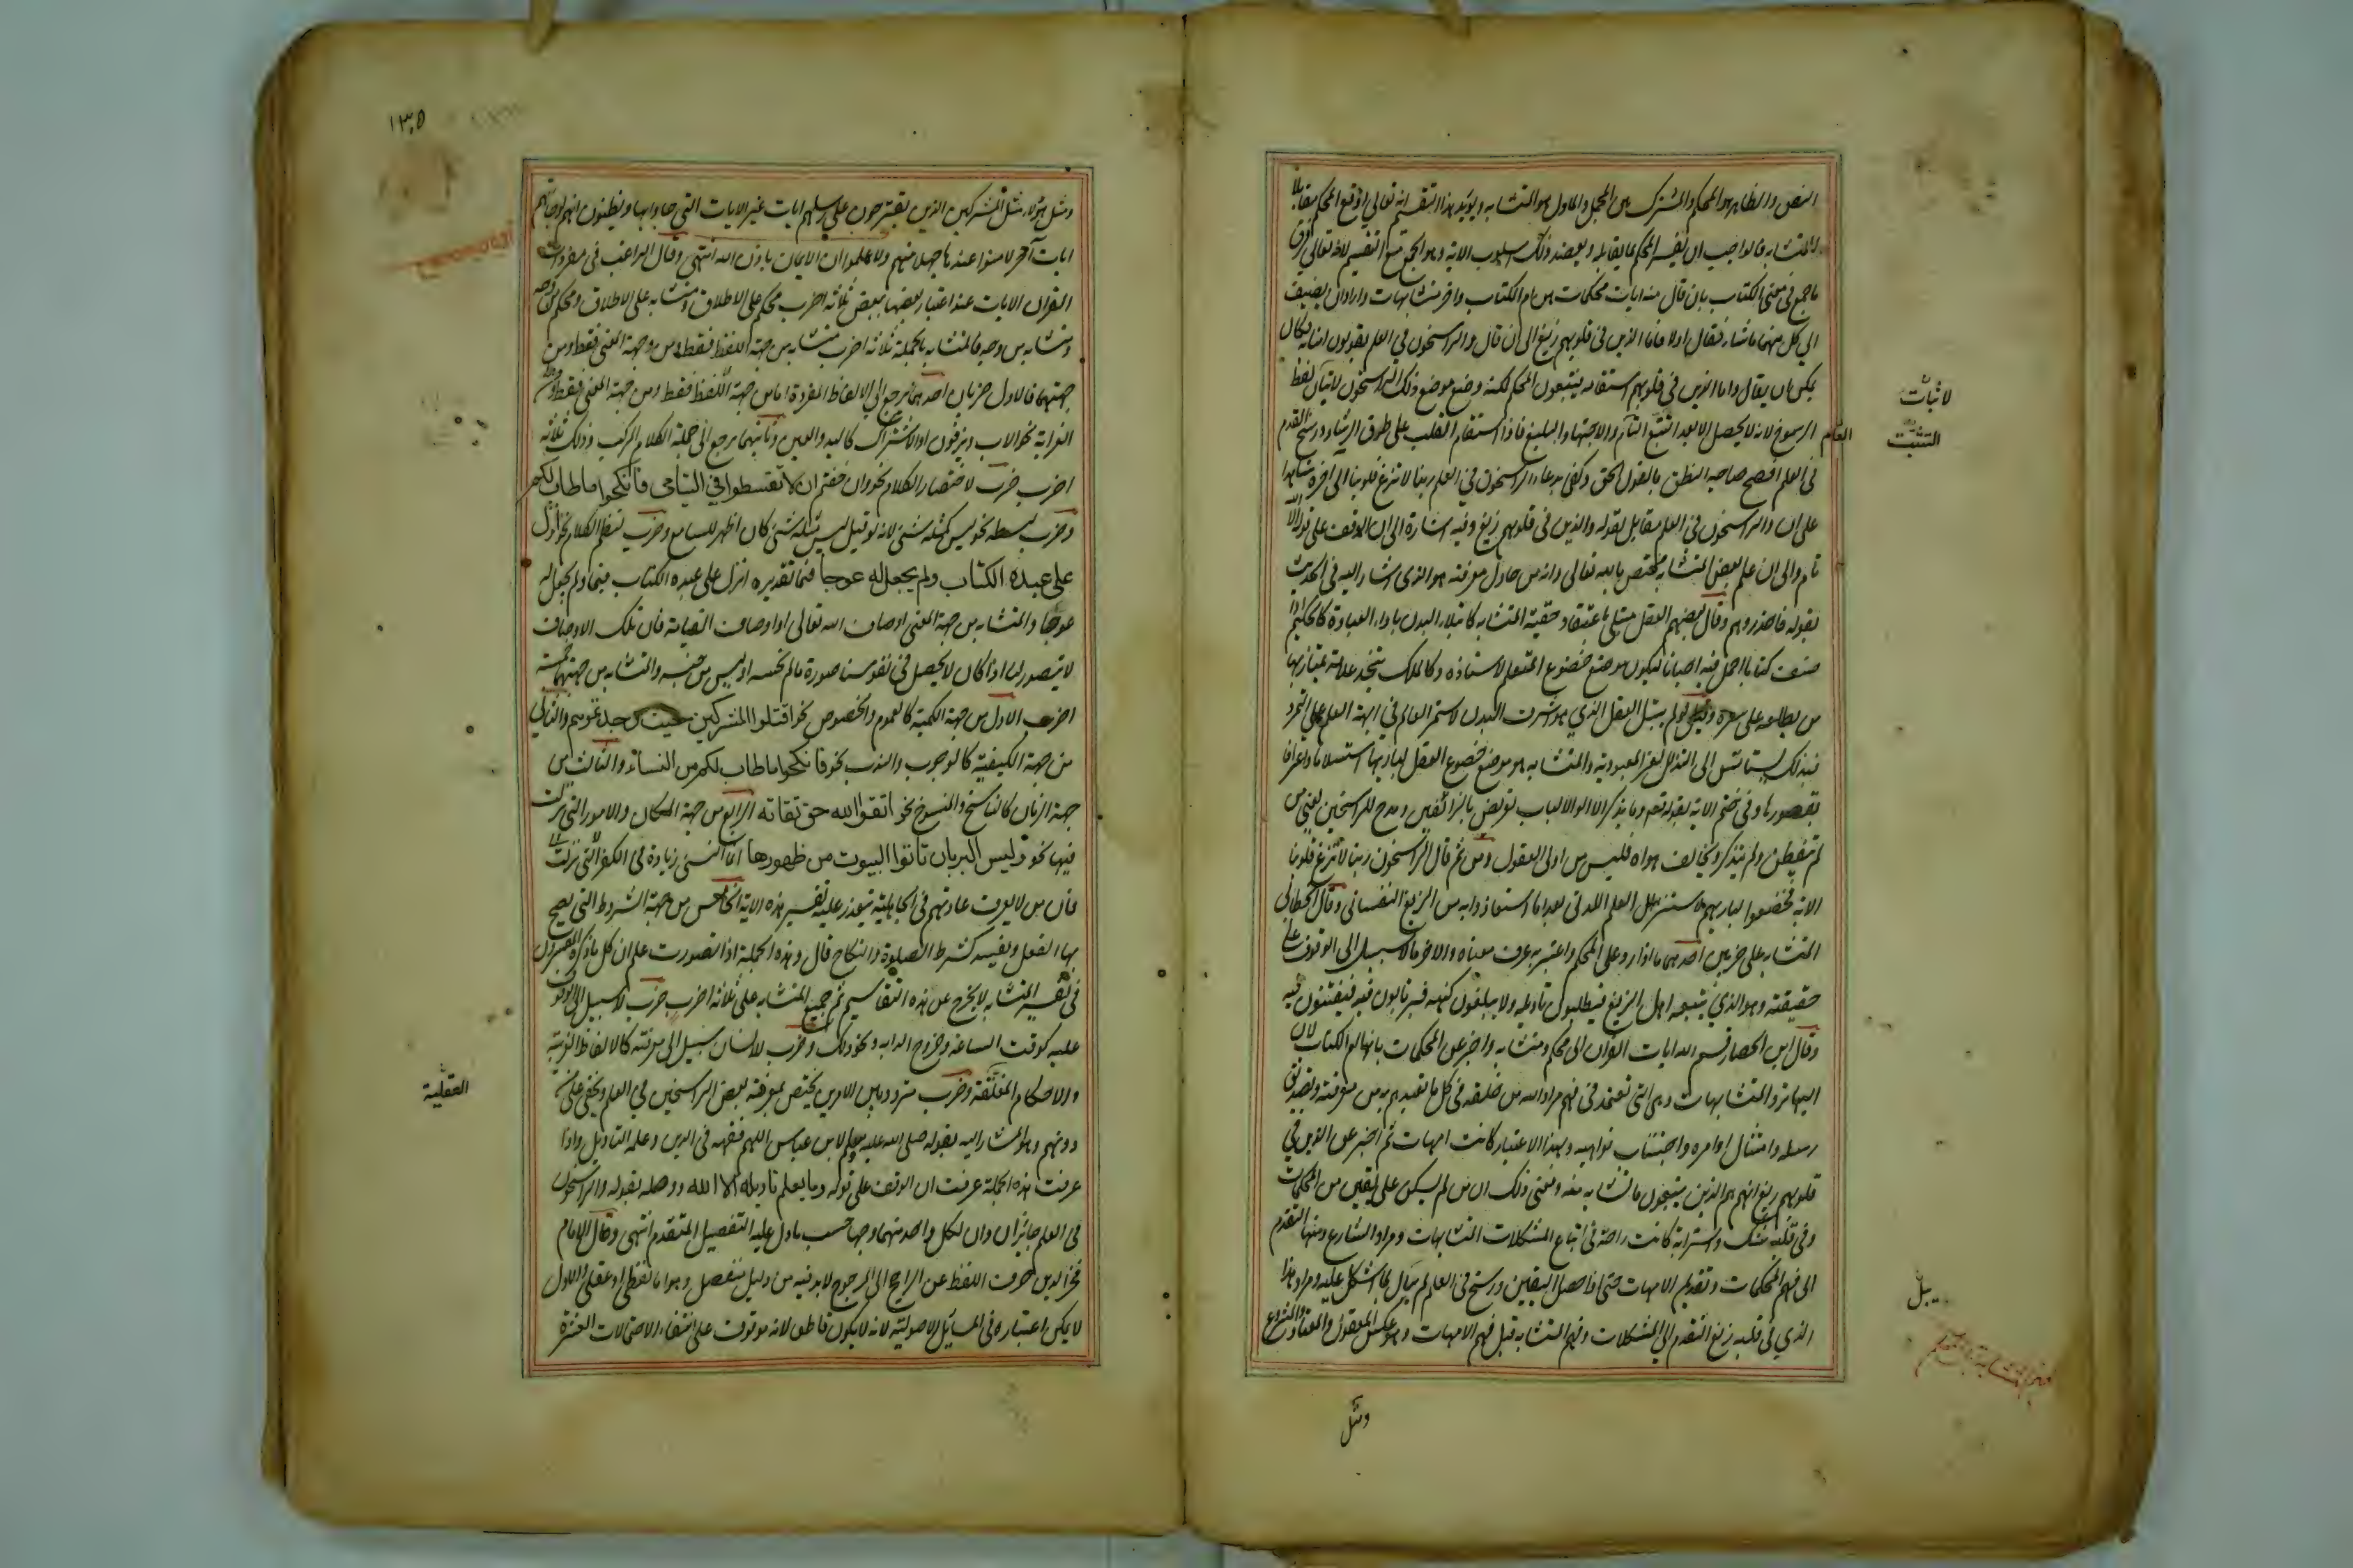 النص والظاهر هو المحكم والمشترك بين المجمل والماول هو المتشابه ويؤيد هذا التقسيم انه تعالى اوقع المحكم مقابلا
للمتشابه فالواجب ان يفسر المحكم بما يقابله ويعضد ذلك اسلوب الاية وهو الجمع مع التقسيم لانه تعالى فرق
ما جمع في معنى الكتاب بان قال منه ايات محكمات هن ام الكتاب واخر متشابهات واراد ان يضيف
الى كل منهما ما شاء فقال اولا فاما الذين في قلوبهم زيغ الى ان قال والراسخون في العلم يقولون امنا به وكان
يمكن ان يقال واما الذين في قلوبهم استقامه يتبعون المحكم لكنه وضع موضع ذلك الراسخون لاتيان لفظ
الرسوخ لانه لا يحصل الا بعد التتبع التام والاجتهاد البليغ فاذا استقام القلب على طرق الرشاد ورسخ القدم
في العلم افصح صاحبه النطق بالقول الحق وكفى بدعاء الراسخون في العلم ربنا لا تزغ قلوبنا الى اخره شاهدا
على ان والراسخون في العلم مقابل لقوله والذين في قلوبهم زيغ وفيه اشارة الى ان الوقف على قوله الا الله
تام والى ان علم بعض المتشابه مختص بالله تعالى وانه من حاول معرفته هو الذى اشار اليه في الحديث
بقوله فاحذروهم وقال بعضهم العقل مبتلى باعتقاد حقية المتشابه كابتلاء البدن باداء العبادة كالحكيم اذا
صنف كتابا اجمل فيه احيانا ليكون موضع خضوع المتعلم لاستاذه وكالملك يتخذ علامة يمتاز بها
من يطلعه على سره وقيل لو لم يبتل العقل الذي هو اشرف البدن لاستمر العالم في ابهة العلم على التمرد
فبذلك يستانس الى التذلل بعز العبودية والمتشابه هو موضع خضوع العقل لباريها استسلاما واعترافا
بقصورها وفي ختم الاية بقوله تعم وما يذكر الا اولو الالباب تعريض بالزائغين ومدح للراسخين يعني من
لم يتفطن ولم يتذكر ويخالف هواه فليس من اولى العقول ومن ثم قال الراسخون ربنا لا تزغ قلوبنا
الاية فخضعوا لباريهم لاستنزال العلم اللدني بعد ان استعاذوا به من الزيغ النفساني وقال الخطابي
المتشابه على ضربين احدهما ما اذا رد على المحكم واعتبر به عرف معناه والاخر ما لا سبيل الى الوقوف على
حقيقته وهو الذي يتبعه اهل الزيغ فيطلبون تاويله ولا يبلغون كنهه فيرتابون فيه فيفتتنون فيه
وقال ابن الحصار قسم الله ايات القران الى محكم ومتشابه واخبر عن المحكمات بانها ام الكتاب لان
اليها ترد المتشابهات وهى التى تعتمد في فهم مراد الله من خلقه في كل ما تعبدهم به من معرفته وتصديق
رسله وامتثال اوامره واجتناب نواهيه وبهذا الاعتبار كانت امهات ثم اخبر عن الذين في
قلوبهم زيغ انهم هم الذين يتبعون ما تشابه منه ومعنى ذلك ان من لم يكن على يقين من المحكمات
وفي قلبه شك واسترابة كانت راحته في اتباع المشكلات المتشابهات ومراد الشارع منها التقدم
الى فهم المحكمات وتقديم الامهات حتى اذا حصل اليقين ورسخ في العلم لم يبال بما اشكل عليه ومراد هذا
الذي في قلبه زيغ التقدم الى المشكلات وفهم المتشابه قبل فهم الامهات وهو عكس المعقول والمعتاد والمشروع
لاثبات
التثبت
العام
ومثل
ومثل هؤلاء مثل المشركين الذين يقترحون على رسلهم ايات غير الايات التي جاؤا بها ويظنون انهم لو جاءتهم
ايات اخر لامنوا عندها جهلا منهم ولا علموا ان الايمان باذن الله انتهى وقال الراغب في مفردات
القران الايات عند اعتبار بعضها ببعض ثلاثة اضرب محكم على الاطلاق ومتشابه على الاطلاق ومحكم من وجه
متشابه من وجه فالمتشابه بالجملة ثلاثة اضرب متشابه من جهة اللفظ فقط ومن جهة المعنى فقط ومن
جهتهما فالاول ضربان احدهما يرجع الى الالفاظ المفردة اما من جهة اللفظ فقط ومن جهة المعنى فقط
الغرابة نحو الاب ويزفون او الاشتراك كاليد والعين وثانيهما يرجع الى جملة الكلام المركب وذلك ثلاثة
اضرب ضرب لاختصار الكلام نحو وان خفتم ان لا تقسطوا في اليتامى فانكحوا ما طاب لكم
وضرب لبسطه نحو ليس كمثله شئ لانه لو قيل ليس مثله شئ كان اظهر للسامع وضرب لنظم الكلام نحو انزل
على عبده الكتاب ولم يجعل له عوجا قيما تقديره انزل على عبده الكتاب قيما ولم يجعل له
عوجا والمتشابه من جهة المعنى اوصاف الله تعالى او اوصاف القيامة فان تلك الاوصاف
لا يتصور لنا اذا كان لا يحصل في نفوسنا صورة ما لم نحسه او ليس من جنسه والمتشابه من جهتهما خمسة
اضرب الاول من جهة الكمية كالعموم والخصوص نحو اقتلوا المشركين حيث وجدتموهم والثاني
من جهة الكيفية كالوجوب والندب نحو فانكحوا ما طاب لكم من النساء والثالث من
جهة الزمان كالناسخ والمنسوخ نحو اتقوا الله حق تقاته الرابع من جهة المكان والامور التي نزلت
فيها نحو وليس البر بان تاتوا البيوت من ظهورها انما النسئ زيادة في الكفر
فان من لا يعرف عادتهم في الجاهلية يتعذر عليه تفسير هذه الاية الخامس من جهة الشروط التي يصح
بها الفعل ويفسد كشرط الصلوة والنكاح قال وهذه الجملة اذا تصورت علم ان كل ما ذكره المفسرون
في تفسير المتشابه لا يخرج عن هذه التقاسيم ثم جميع المتشابه على ثلاثة اضرب ضرب لا سبيل الى الوقوف
عليه كوقت الساعة وخروج الدابه ونحو ذلك وضرب للانسان سبيل الى معرفته كالالفاظ الغريبة
والاحكام المغلقة وضرب متردد بين الامرين يختص بمعرفته بعض الراسخين في العلم ويخفى على من
دونهم وهو المشار اليه بقوله صلى الله عليه وسلم لابن عباس اللهم فقهه في الدين وعلمه التاويل واذا
عرفت هذه الجملة عرفت ان الوقف على قوله وما يعلم تاويله الا الله ووصله بقوله والراسخون
في العلم جايزان وان لكل واحد منهما وجها حسب ما دل عليه التفصيل المتقدم انتهى وقال الامام
فخر الدين صرف اللفظ عن الراجح الى المرجوح لا بد فيه من دليل منفصل وهو اما لفظى او عقلى والاول
لا يمكن اعتباره في المسائل الاصولية لانه لا يكون قاطعا لانه موقوف على انتفاء الاحتمالات العشرة
العقلية
١٣٥